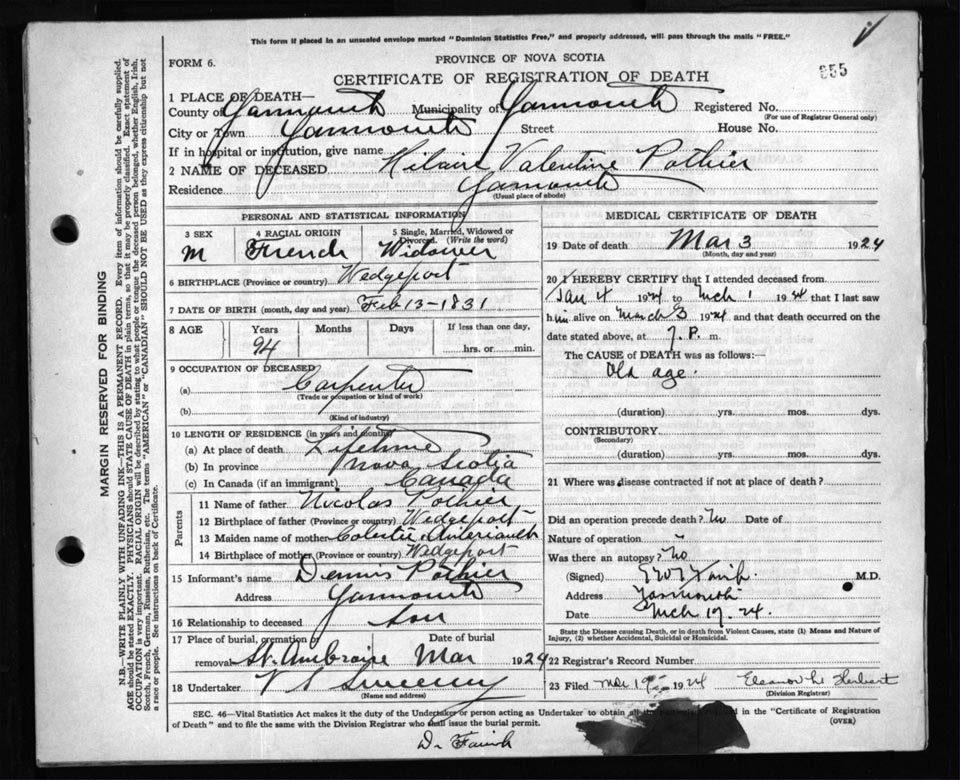 This form if placed in an unsealed envelope marked "Dominion Statistics Free," and properly addressed, will pass through the mails "FREE."
FORM 6.
PROVINCE OF NOVA SCOTIA
CERTIFICATE OF REGISTRATION OF DEATH
355
1 PLACE OF DEATH—
County of Yarmouth Municipality of Yarmouth Registered No.
(For use of Registrar General only)
City or Town Yarmouth Street House No.
If in hospital or institution, give name
2 NAME OF DECEASED Hilaire Valentine Pothier
Residence Yarmouth
(Usual place of abode)
MARGIN RESERVED FOR BINDING
N.B.—WRITE PLAINLY WITH UNFADING INK—THIS IS A PERMANENT RECORD. Every item of information should be carefully supplied.
AGE should be stated EXACTLY. PHYSICIANS should STATE CAUSE OF DEATH in plain terms, so that it may be properly classified. Exact statement of
OCCUPATION is very important. RACIAL ORIGIN will be described by stating to what people or tongue the deceased person belonged, whether English, Irish,
Scotch, French, German, Russian, Ruthenian, etc. The terms "AMERICAN" or "CANADIAN" SHOULD NOT BE USED as they express citizenship but not
a race or people. See instructions on back of Certificate.
PERSONAL AND STATISTICAL INFORMATION
3 SEX
M
4 RACIAL ORIGIN
French
5 Single, Married, Widowed or
Divorced. (Write the word)
Widower
6 BIRTHPLACE (Province or country) Wedgeport
7 DATE OF BIRTH (month, day and year) Feb 13-1831
8 AGE Years Months Days If less than one day,
94 hrs. or min.
9 OCCUPATION OF DECEASED
(a) Carpenter
(Trade or occupation or kind of work)
(b)
(Kind of industry)
10 LENGTH OF RESIDENCE (in years and months)
(a) At place of death Lifetime
(b) In province Nova Scotia
(c) In Canada (if an immigrant) Canada
Parents
11 Name of father Nicolas Pothier
12 Birthplace of father (Province or country) Wedgeport
13 Maiden name of mother
14 Birthplace of mother (Province or country) Wedgeport
15 Informant's name Dennis Pothier
Address Yarmouth
16 Relationship to deceased Son
17 Place of burial, cremation or Date of burial
removal St. Ambroise Mar 1924
18 Undertaker V S Sweeny
(Name and address)
MEDICAL CERTIFICATE OF DEATH
19 Date of death Mar 3 1924
(Month, day and year)
20 I HEREBY CERTIFY that I attended deceased from
Jan 4 1924 to Mch 1 1924 that I last saw
him alive on March 3 1924 and that death occurred on the
date stated above, at 7. P. m.
The CAUSE of DEATH was as follows:—
Old age.
(duration) yrs. mos. dys.
CONTRIBUTORY
(Secondary)
(duration) yrs. mos. dys.
21 Where was disease contracted if not at place of death?
Did an operation precede death? No Date of
Nature of operation "
Was there an autopsy? No
(Signed) M.D.
Address Yarmouth
Date Mch 17. 24.
State the Disease causing Death, or in death from Violent Causes, state (1) Means and Nature of
Injury, (2) whether Accidental, Suicidal or Homicidal.
22 Registrar's Record Number
23 Filed Mar 19 1924 Eleanor M Herbert
(Division Registrar)
SEC. 46—Vital Statistics Act makes it the duty of the Undertaker or person acting as Undertaker to obtain all the in the "Certificate of Registration
of Death" and to file the same with the Division Registrar who shall issue the burial permit. (OVER)
Dr Farish